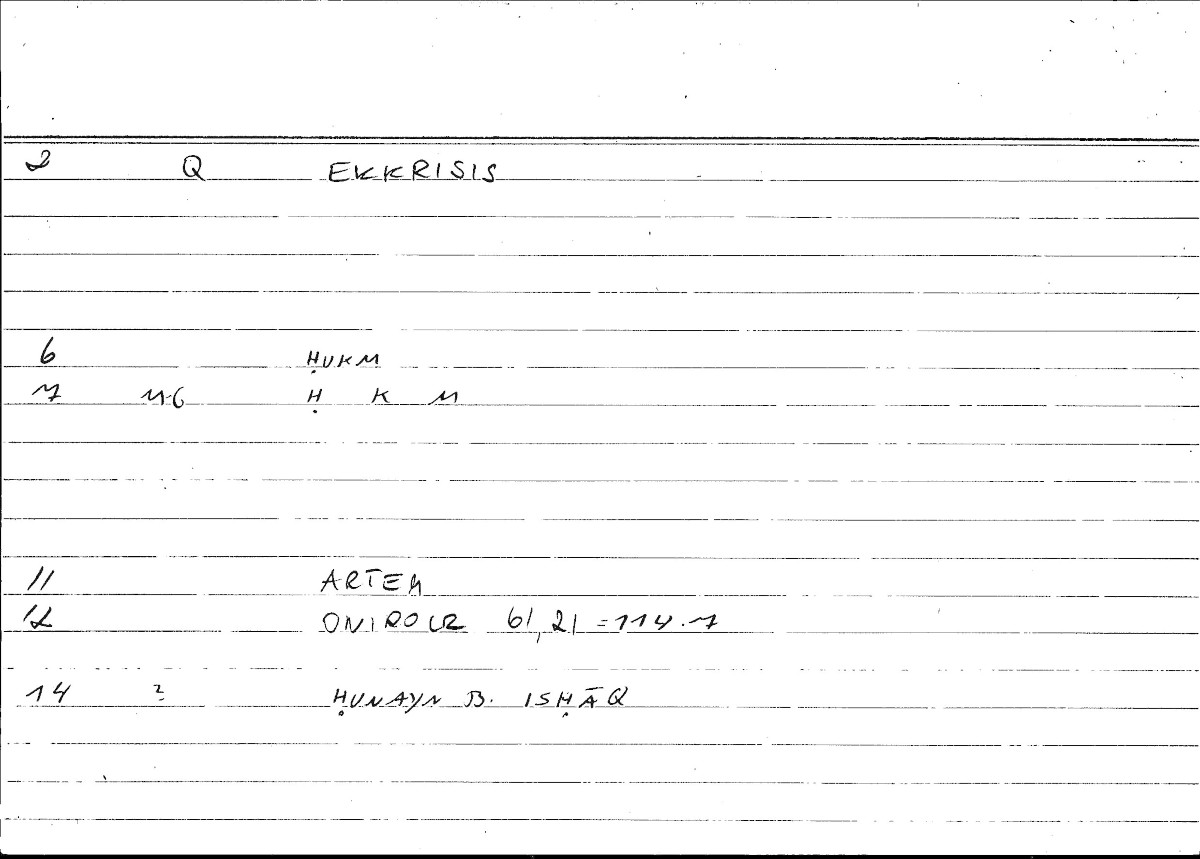 2 Q EKKRISIS
6 ḤUKM
7 M6 Ḥ K M
11 ARTEM
12 ONIROCR 61,21 = 114.7
14 ? ḤUNAYN B. ISḤĀQ